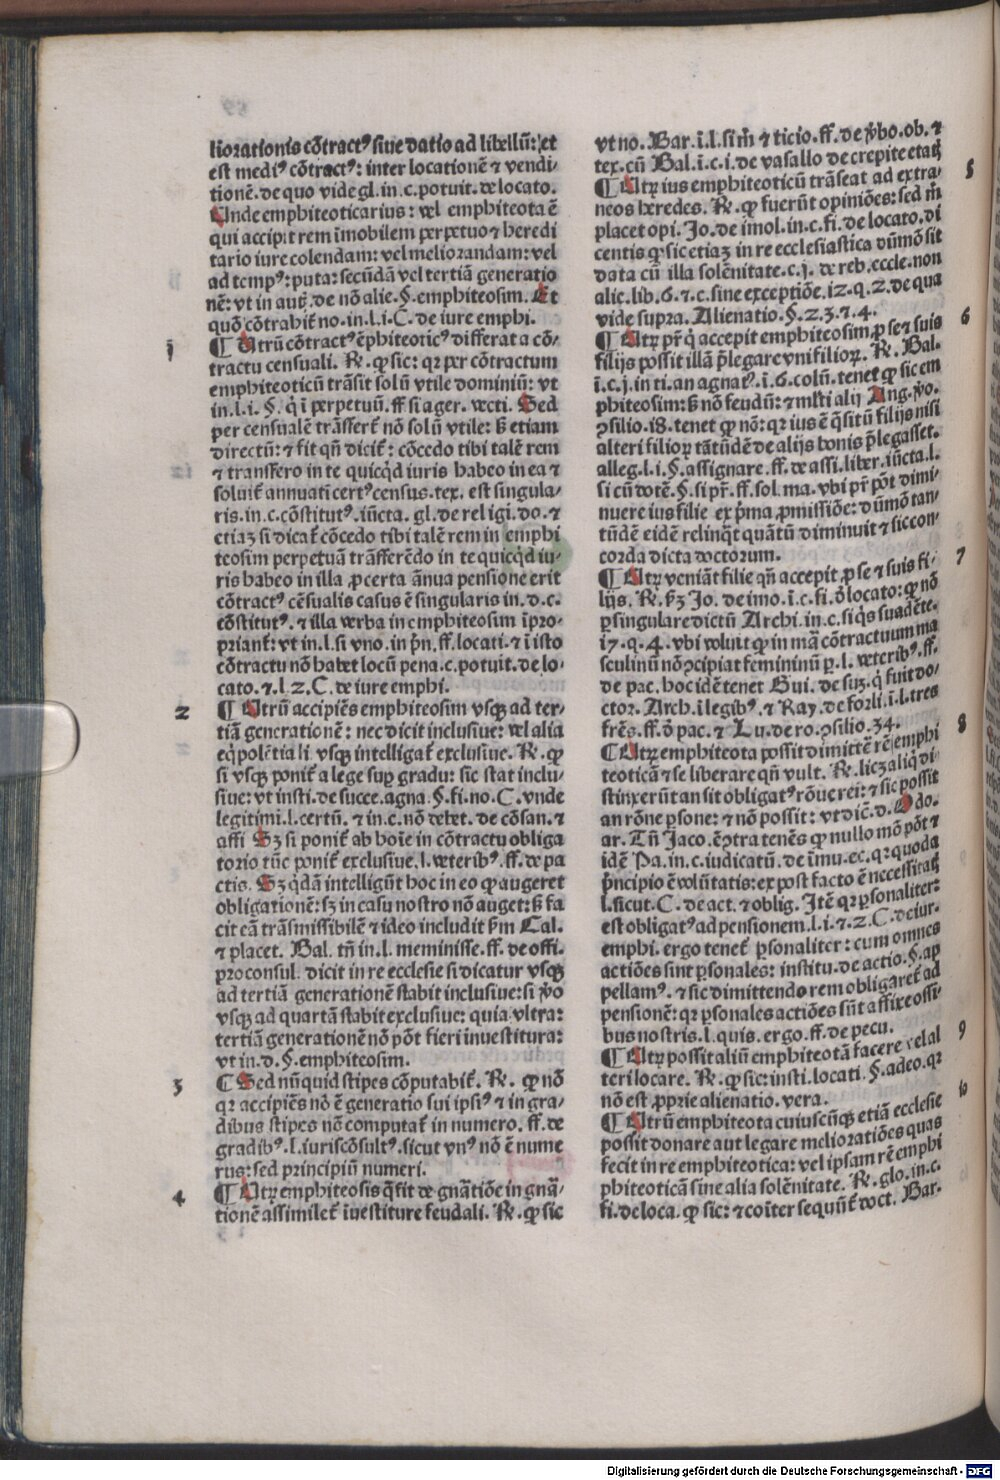 liorationis cōtractꝰ siue datio ad libellū: et
est mediꝰ cōtractꝰ: inter locationē ⁊ vendi⸗
tionē. de quo vide gl. in. c. potuit. de locato.
Unde emphiteoticarius: vel emphiteota ē
qui accipit rem īmobilem perpetuo ⁊ heredi
tario iure colendam: vel meliorandam: vel
ad tempꝰ: puta: secūdā vel tertiā generatio
nē: vt in aut͛. de nō alie. §. emphiteosim. Et
quō cōtrahit͛ no. in. l. i. C. de iure emphi.
1
¶ Utrū cōtractꝰ ēphiteoticꝰ differat a cō⸗
tractu censuali. ℞. ꝙ sic: qꝛ per cōtractum
emphiteoticū trāsit solū vtile dominiū: vt
in. l. i. §. q̇ ī perpetuū. ff si ager. vecti. Sed
per censualē trāsfert͛ nō solū vtile: s̄ etiam
directū: ⁊ fit qn̄ dicit͛: cōcedo tibi talē rem
⁊ transfero in te quicq̇d iuris habeo in ea ⁊
soluit͛ annuati certꝰ census. tex. est singula⸗
ris. in. c. cōstitutꝰ. iūcta. gl. de religi. do. ⁊
etiaꝫ si dicat͛ cōcedo tibi talē rem in emphi
teosim perpetuā trāsferēdo in te quicq̇d iu⸗
ris habeo in illa ꝓ certa ānua pensione erit
cōtractꝰ cēsualis casus ē singularis in. d. c.
cōstitutꝰ. ⁊ illa verba in emphiteosim īpro⸗
priant͛: vt in. l. si vno. in p̄n. ff. locati. ⁊ ī isto
cōtractu nō habet locū pena. c. potuit. de lo⸗
cato. ⁊. l. 2. C. de iure emphi.
2
¶ Utrū accipiēs emphiteosim vsqꝫ ad ter⸗
tiā generationē: nec dicit inclusiue: vel alia
eq̇polētia li. vsqꝫ intelligat͛ exclusiue. ℞. ꝙ
si vsqꝫ ponit͛ a lege suꝑ gradu: sic stat inclu⸗
siue: vt insti. de succe. agna. §. fi. no. C. vnde
legitimi. l. certū. ⁊ in. c. nō debet. de cōsan. ⁊
affi Sꝫ si ponit͛ ab hoīe in cōtractu obliga
torio tūc ponit͛ exclusiue. l. veteribꝰ. ff. de pa
ctis. Sꝫ q̇dā intelligūt hoc in eo ꝙ augeret
obligationē: sꝫ in casu nostro nō auget: s̄ fa
cit eā trāsmissibilē ⁊ ideo includit ẜm Cal.
⁊ placet. Bal. tn̄ in. l. meminisse. ff. de offi.
proconsul. dicit in re ecclesie si dicatur vsqꝫ
ad tertiā generationē stabit inclusiue: si ꝟo
vsqꝫ ad quartā stabit exclusiue: quia vltra:
tertiā generationē nō pōt fieri inuestitura:
vt in. d. §. emphiteosim.
3
¶ Sed nūquid stipes cōputabit͛. ℞. ꝙ nō
qꝛ accipiēs nō ē generatio sui ipsiꝰ ⁊ in gra⸗
dibus stipes nō computat͛ in numero. ff. de
gradibꝰ. l. iuriscōsultꝰ. sicut vnꝰ nō ē nume
rus: sed principiū numeri.
4
¶ Utꝝ emphiteosis q̄ fit de gn̄atiōe in gnā⸗
tionē assimilet͛ īuestiture feudali. ℞. ꝙ sic
vt no. Bar. ī. l. si m̄ ⁊ ticio. ff. de ꝟbo. ob. ⁊
tex. cū Bal. ī. c. i. de vasallo decrepite etatꝭ
5
¶ Utꝝ ius emphiteoticū trāseat ad extra⸗
neos heredes. ℞. ꝙ fuerūt opiniōes: sed m̄
placet opi. Jo. de imol. in. c. fi. de locato. di
centis ꝙ sic etiaꝫ in re ecclesiastica dūmō sit
data cū illa solēnitate. c. j. de reb. eccle. non
alie. lib. 6. ⁊. c. sine exceptiōe. 12. q. 2. de qua
vide supra. Alienatio. §. 2. 3. ⁊. 4.
6
¶ Utꝝ pr̄ q̇ accepit emphiteosim ꝓ se ⁊ suis
filijs possit illā p̄legare vni filioꝝ. ℞. Bal.
ī. c. j. in ti. an agnatꝰ. ī. 6. colū. tenet ꝙ sic em
phiteosim: s̄ nō feudū: ⁊ ml̄ti alij Ang. ꝟo.
ꝯsilio. 18. tenet ꝙ nō: qꝛ ius ē q̄situ͂ filijs nisi
alteri filioꝝ tātūdē de alijs bonis p̄legasset.
alleg. l. i. §. assignare. ff. de assi. liber. iūcta. l.
si cū dotē. §. si pr̄. ff. sol. ma. vbi pr̄ pōt dimi⸗
nuere ius filie ex p̄ma ꝓmissiōe: dūmō tan⸗
tūdē eidē relinq̇t quātū diminuit ⁊ sic con⸗
corda dicta doctorum.
7
¶ Utꝝ veniāt filie qn̄ accepit ꝓ se ⁊ suis fi⸗
lijs. ℞. ẜꝫ Jo. de imo. ī. c. fi. ō locato: ꝙ nō
ꝑ singulare dictū Archi. in. c. si q̇s suadēte.
17. q. 4. vbi voluit ꝙ in mā cōtractuum ma
sculinū nō ꝯcipiat femininū ꝑ. l. veteribꝰ. ff.
de pac. hoc idē tenet Gui. de suꝫ. q̇ fuit do⸗
ctor. Arch. ī legibꝰ. ⁊ Ray. de forli. ī. l. tres
frēs. ff. ō pac. ⁊ Lu. de ro. ꝯsilio. 34.
8
¶ Utꝝ emphiteota possit dimittē rē emphi
teoticā ⁊ se liberare qn̄ vult. ℞. licꝫ aliq̇ di⸗
stinxerūt an sit obligatꝰ rōne rei: ⁊ sic possit
an rōne ꝑsone: ⁊ nō possit: vt dic̄. d. Odo.
ar. Tn̄ Jaco. ēꝯtra tenēs ꝙ nullo mō pōt ⁊
idē Pa. in. c. iudicatū. de īmu. ec. qꝛ quoda
p̄ncipio ē volūtatis: ex post facto ē necessitatꝭ
l. sicut. C. de act. ⁊ oblig. Itē qꝛ ꝑsonaliter:
est obligatꝰ ad pensionem. l. i. ⁊. 2. C. de iur.
emphi. ergo tenet͛ ꝑsonaliter: cum omnes
actiōes sint ꝑsonales: institu. de actio. §. ap
pellamꝰ. ⁊ sic dimittendo rem obligaret͛ ad
pensionē: qꝛ ꝑsonales actiōes sūt affixe ossi⸗
bus nostris. l. quis. ergo. ff. de pecu.
9
¶ Utꝝ possit aliū emphiteotā facere vel al
teri locare. ℞. ꝙ sic: insti. locati. §. adeo. qꝛ
nō est ꝓprie alienatio. vera.
10
¶ Utrū emphiteota cuiuscūqꝫ etiā ecclesie
possit donare aut legare melioratiōes quas
fecit in re emphiteotica: vel ipsam rē emphi
phiteoticā sine alia solēnitate. ℞. glo. in. c.
fi. de loca. ꝙ sic: ⁊ coīter sequūt͛ doct. Bar.
Digitalisierung gefördert durch die Deutsche Forschungsgemeinschaft - DFG